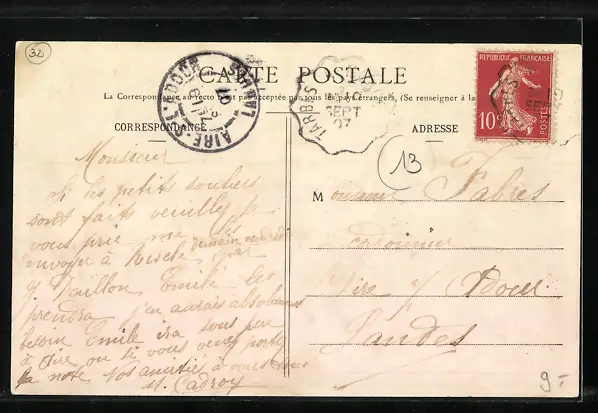 32
CARTE POSTALE
La Correspondance au recto n'est pas acceptée par tous les pays étrangers, (Se renseigner à la
CORRESPONDANCE
ADRESSE
AIRE-S-L'ADOUR
LANDES
TARBES
SEPT
07
REPUBLIQUE FRANÇAISE
10c
POSTES
13
Monsieur
Si les petits souliers
sont faits veuillez je
vous prie me les
envoyer à Riscle demain vendredi par
Emile les
prendra j'en aurais absolument
besoin Emile ira sous peu
à Aire ou si vous venez portez
la note Nos amitiés à vous tous
M. Cadroy
Monsieur Fabres
cordonnier
Aire s/ Adour
Landes
9-